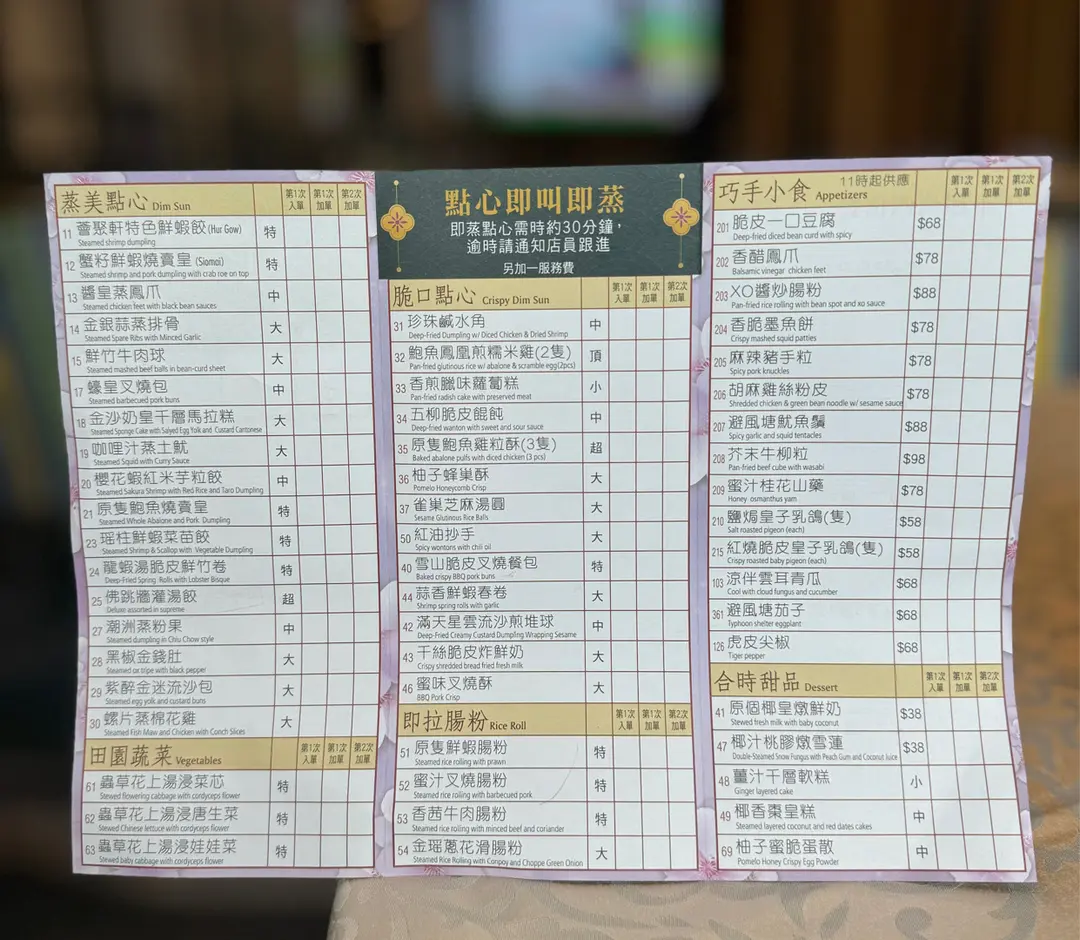 蒸美點心 Dim Sun 第1次入單 第1次加單 第2次加單
11 薈聚軒特色鮮蝦餃 (Hur Gow) 特
Steamed shrimp dumpling
12 蟹籽鮮蝦燒賣皇 (Siomai) 特
Steamed shrimp and pork dumpling with crab roe on top
13 醬皇蒸鳳爪 中
Steamed chicken feet with black bean sauces
14 金銀蒜蒸排骨 大
Steamed Spare Ribs with Minced Garlic
15 鮮竹牛肉球 大
Steamed mashed beef balls in bean-curd sheet
17 蠔皇叉燒包 中
Steamed barbecued pork buns
18 金沙奶皇千層馬拉糕 大
Steamed Sponge Cake with Salyed Egg Yolk and Custard Cantonese
19 咖哩汁蒸土魷 大
Steamed Squid with Curry Sauce
20 櫻花蝦紅米芋粒餃 中
Steamed Sakura Shrimp with Red Rice and Taro Dumpling
21 原隻鮑魚燒賣皇 特
Steamed Whole Abalone and Pork Dumpling
23 瑶柱鮮蝦菜苗餃 特
Steamed Shrimp & Scallop with Vegetable Dumpling
24 龍蝦湯脆皮鮮竹卷 特
Deep-Fried Spring Rolls with Lobster Bisque
25 佛跳牆灌湯餃 超
Deluxe assorted in supreme
27 潮洲蒸粉果 中
Steamed dumpling in Chiu Chow style
28 黑椒金錢肚 大
Steamed ox tripe with black pepper
29 紫醉金迷流沙包 大
Steamed egg yolk and custard buns
30 螺片蒸棉花雞 大
Steamed Fish Maw and Chicken with Conch Slices
田園蔬菜 Vegetables 第1次入單 第1次加單 第2次加單
61 蟲草花上湯浸菜芯 特
Stewed flowering cabbage with cordyceps flower
62 蟲草花上湯浸唐生菜 特
Stewed Chinese lettuce with cordyceps flower
63 蟲草花上湯浸娃娃菜 特
Stewed baby cabbage with cordyceps flower
點心即叫即蒸
即蒸點心需時約30分鐘，
逾時請通知店員跟進
另加一服務費
脆口點心 Crispy Dim Sun 第1次入單 第1次加單 第2次加單
31 珍珠鹹水角 中
Deep-Fried Dumpling w/ Diced Chicken & Dried Shrimp
32 鮑魚鳳凰煎糯米雞(2隻) 頂
Pan-fried glutinous rice w/ abalone & scramble egg(2pcs)
33 香煎臘味蘿蔔糕 小
Pan-fried radish cake with preserved meat
34 五柳脆皮餛飩 中
Deep-fried wanton with sweet and sour sauce
35 原隻鮑魚雞粒酥(3隻) 超
Baked abalone pulls with diced chicken (3 pcs)
36 柚子蜂巢酥 大
Pomelo Honeycomb Crisp
37 雀巢芝麻湯圓 大
Sesame Glutinous Rice Balls
50 紅油抄手 大
Spicy wontons with chili oil
40 雪山脆皮叉燒餐包 特
Baked crispy BBQ pork buns
44 蒜香鮮蝦春卷 大
Shrimp spring rolls with garlic
42 滿天星雲流沙煎堆球 中
Deep-Fried Creamy Custard Dumpling Wrapping Sesame
43 千絲脆皮炸鮮奶 大
Crispy shredded bread fried fresh milk
46 蜜味叉燒酥 大
BBQ Pork Crisp
即拉腸粉 Rice Roll 第1次入單 第1次加單 第2次加單
51 原隻鮮蝦腸粉 特
Steamed rice rolling with prawn
52 蜜汁叉燒腸粉 特
Steamed rice rolling with barbecued pork
53 香茜牛肉腸粉 特
Steamed rice rolling with minced beef and coriander
54 金瑶蔥花滑腸粉 大
Steamed Rice Rolling with Conpoy and Choppe Green Onion
巧手小食 11時起供應 Appetizers 第1次入單 第1次加單 第2次加單
201 脆皮一口豆腐 $68
Deep-fried diced bean curd with spicy
202 香醋鳳爪 $78
Balsamic vinegar chicken feet
203 XO醬炒腸粉 $88
Pan-fried rice rolling with bean spot and xo sauce
204 香脆墨魚餅 $78
Crispy mashed squid patties
205 麻辣豬手粒 $78
Spicy pork knuckles
206 胡麻雞絲粉皮 $78
Shredded chicken & green bean noodle w/ sesame sauce
207 避風塘魷魚鬚 $88
Spicy garlic and squid tentacles
208 芥末牛柳粒 $98
Pan-fried beef cube with wasabi
209 蜜汁桂花山藥 $78
Honey osmanthus yam
210 鹽焗皇子乳鴿(隻) $58
Salt roasted pigeon (each)
215 紅燒脆皮皇子乳鴿(隻) $58
Crispy roasted baby pigeon (each)
103 涼伴雲耳青瓜 $68
Cool with cloud fungus and cucumber
361 避風塘茄子 $68
Typhoon shelter eggplant
126 虎皮尖椒 $68
Tiger pepper
合時甜品 Dessert 第1次入單 第1次加單 第2次加單
41 原個椰皇燉鮮奶 $38
Stewed fresh milk with baby coconut
47 椰汁桃膠燉雪蓮 $38
Double-Steamed Snow Fungus with Peach Gum and Coconut Juice
48 薑汁千層軟糕 小
Ginger layered cake
49 椰香棗皇糕 中
Steamed layered coconut and red dates cakes
69 柚子蜜脆蛋散 中
Pomelo Honey Crispy Egg Powder